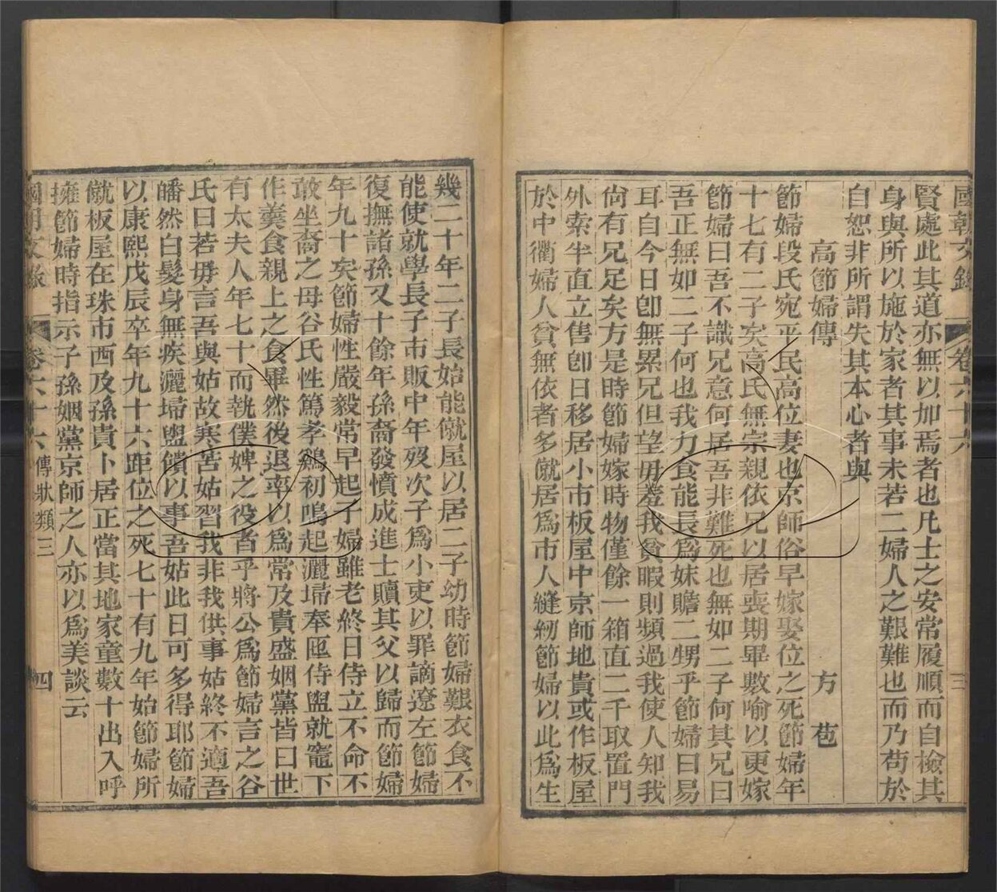 國朝文錄　卷六十六　三
賢處此其道亦無以加焉者也凡士之安常履順而自檢其
身與所以施於家者其事未若二婦人之艱難也而乃苟於
自恕非所謂失其本心者與
高節婦傳　方苞
節婦段氏宛平民高位妻也京師俗早嫁娶位之死節婦年
十七有二子矣高氏無宗親依兄以居喪期畢數喻以更嫁
節婦曰吾不識兄意何居吾非難死也無如二子何其兄曰
吾正無如二子何也我力食能長爲妹贍二甥乎節婦曰易
耳自今日卽無累兄但望毋羞我貧暇則頻過我使人知我
尙有兄足矣方是時節婦嫁時物僅餘一箱直二千取置門
外索半直立售卽日移居小市板屋中京師地貴或作板屋
於中衢婦人貧無依者多僦居爲市人縫紉節婦以此爲生
幾二十年二子長始能僦屋以居二子幼時節婦艱衣食不
能使就學長子市販中年歿次子爲小吏以罪謫遼左節婦
復撫諸孫又十餘年孫裔發憤成進士贖其父以歸而節婦
年九十矣節婦性嚴毅常早起子婦雖老終日侍立不命不
敢坐裔之母谷氏性篤孝鷄初鳴起灑埽奉匜侍盥就竈下
作羹食親上之食畢然後退率以爲常及貴盛姻黨皆曰世
有太夫人年七十而執僕婢之役者乎將公爲節婦言之谷
氏曰若毋言吾與姑故寒苦姑習我非我供事姑終不適吾
皤然白髮身無疾灑埽盥饋以事吾姑此日可多得耶節婦
以康熙戊辰卒年九十六距位之死七十有九年始節婦所
僦板屋在珠市西及孫貴卜居正當其地家童數十出入呼
擁節婦時指示子孫姻黨京師之人亦以爲美談云
國朝文錄　卷六十六　傳狀類三　四